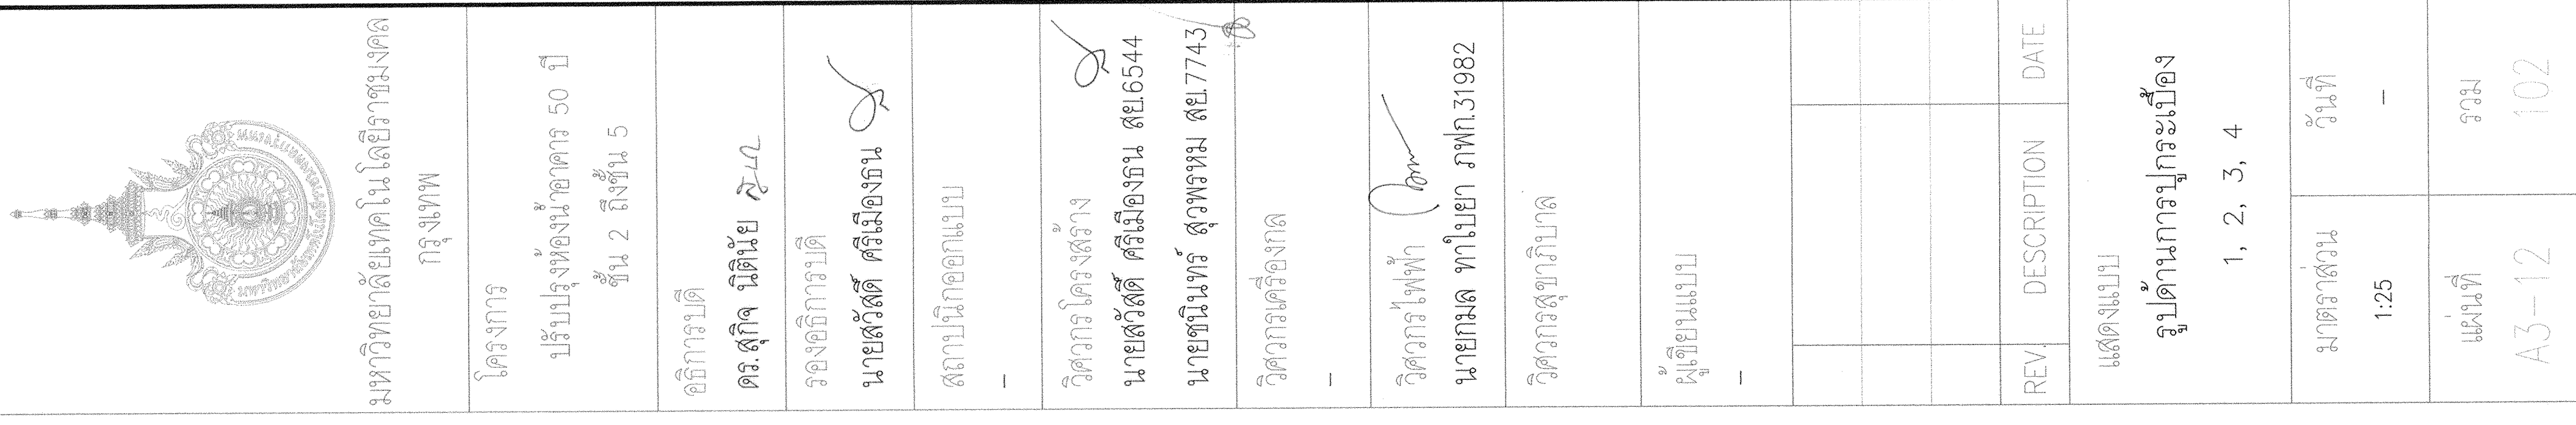 มหาวิทยาลัยเทคโนโลยีราชมงคล
กรุงเทพ
โครงการ
ปรับปรุงห้องน้ำอาคาร 50 ปี
ชั้น 2 ถึงชั้น 5
อธิการบดี
ดร.สุกิจ นิตินัย
รองอธิการบดี
นายสวัสดิ์ ศรีเมืองธน
สถาปนิกออกแบบ
-
วิศวกรโครงสร้าง
นายสวัสดิ์ ศรีเมืองธน สย.6544
นายชนินทร์ สุวพรหม สย.7743
วิศวกรเครื่องกล
-
วิศวกรไฟฟ้า
นายกมล ทาใบยา ภฟก.31982
วิศวกรสุขาภิบาล
ผู้เขียนแบบ
-
REV. DESCRIPTION DATE
แสดงแบบ
รูปด้านการปูกระเบื้อง
1, 2, 3, 4
มาตราส่วน วันที่
1:25 -
แผ่นที่ รวม
A3-12 102